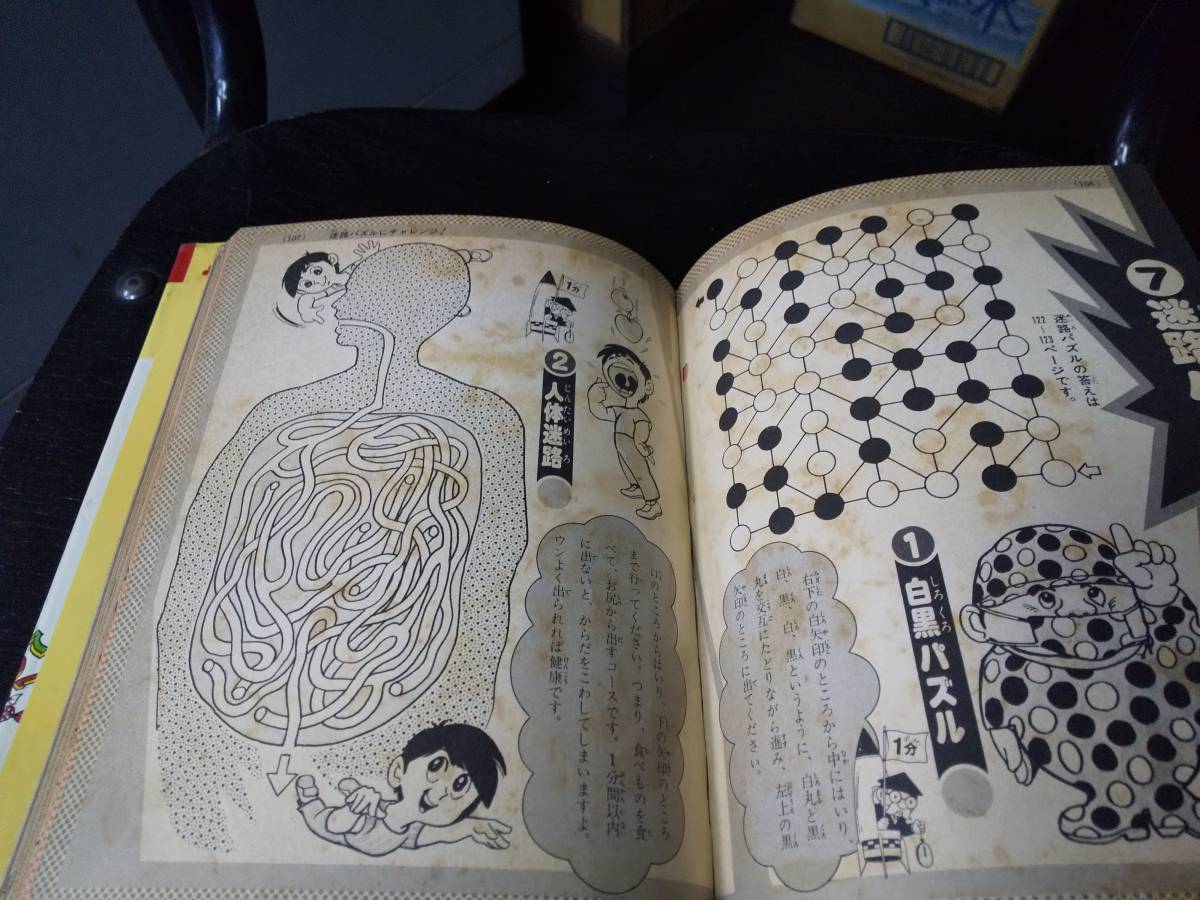 (106)
7 迷路
迷路パズルの答えは
122〜123ページです。
1 白黒パズル
しろくろ
1分
右下の白矢印のところから中にはいり、
白、黒、白、黒というように、白丸と黒
丸を交互にたどりながら進み、左上の黒
矢印のところに出てください。
(107) 迷路パズルにチャレンジ!
1分
2 人体迷路
じんたいめいろ
口のところからはいり、下の矢印のところ
まで行ってください。つまり、食べものを食
べて、お尻から出すコースです。1分間以内
に出ないと、からだをこわしてしまいますよ。
ウンよく出られれば健康です。